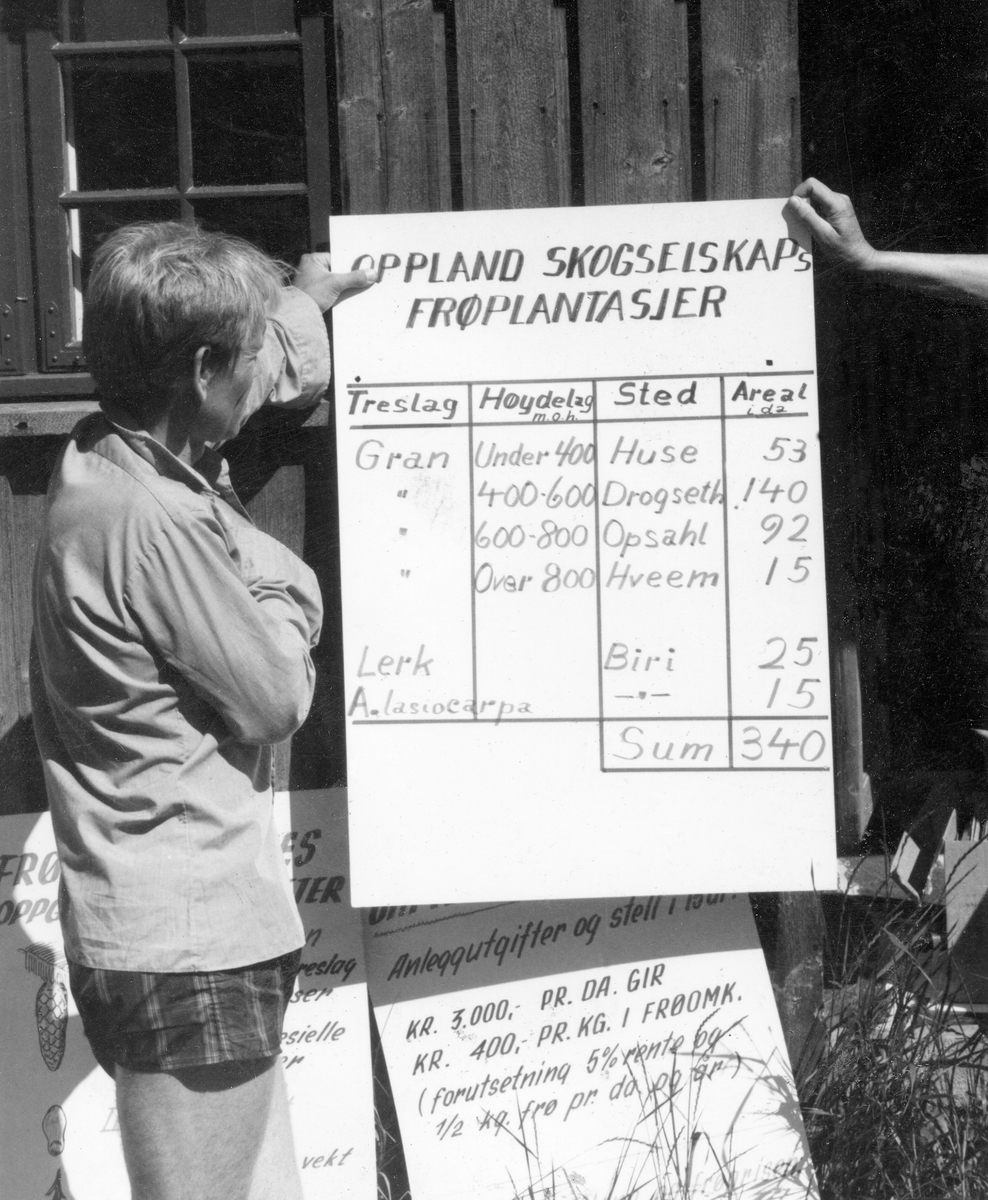 OPPLAND SKOGSELSKAPs
FRØPLANTASJER
Treslag Høydelag m.o.h. Sted Areal i da
Gran Under 400 Huse 53
" 400-600 Drogseth 140
" 600-800 Opsahl 92
" Over 800 Hveem 15
Lerk Biri 25
A. lasiocarpa —"— 15
Sum 340
FRØ ES
OPPG TER
reslag
ser
esielle
er
vekt
Anleggutgifter og stell i 15 år.
KR. 3.000,- PR. DA. GIR
KR. 400,- PR. KG. I FRØOMK.
(forutsetning 5% rente og
1/2 kg. frø pr. da og år)